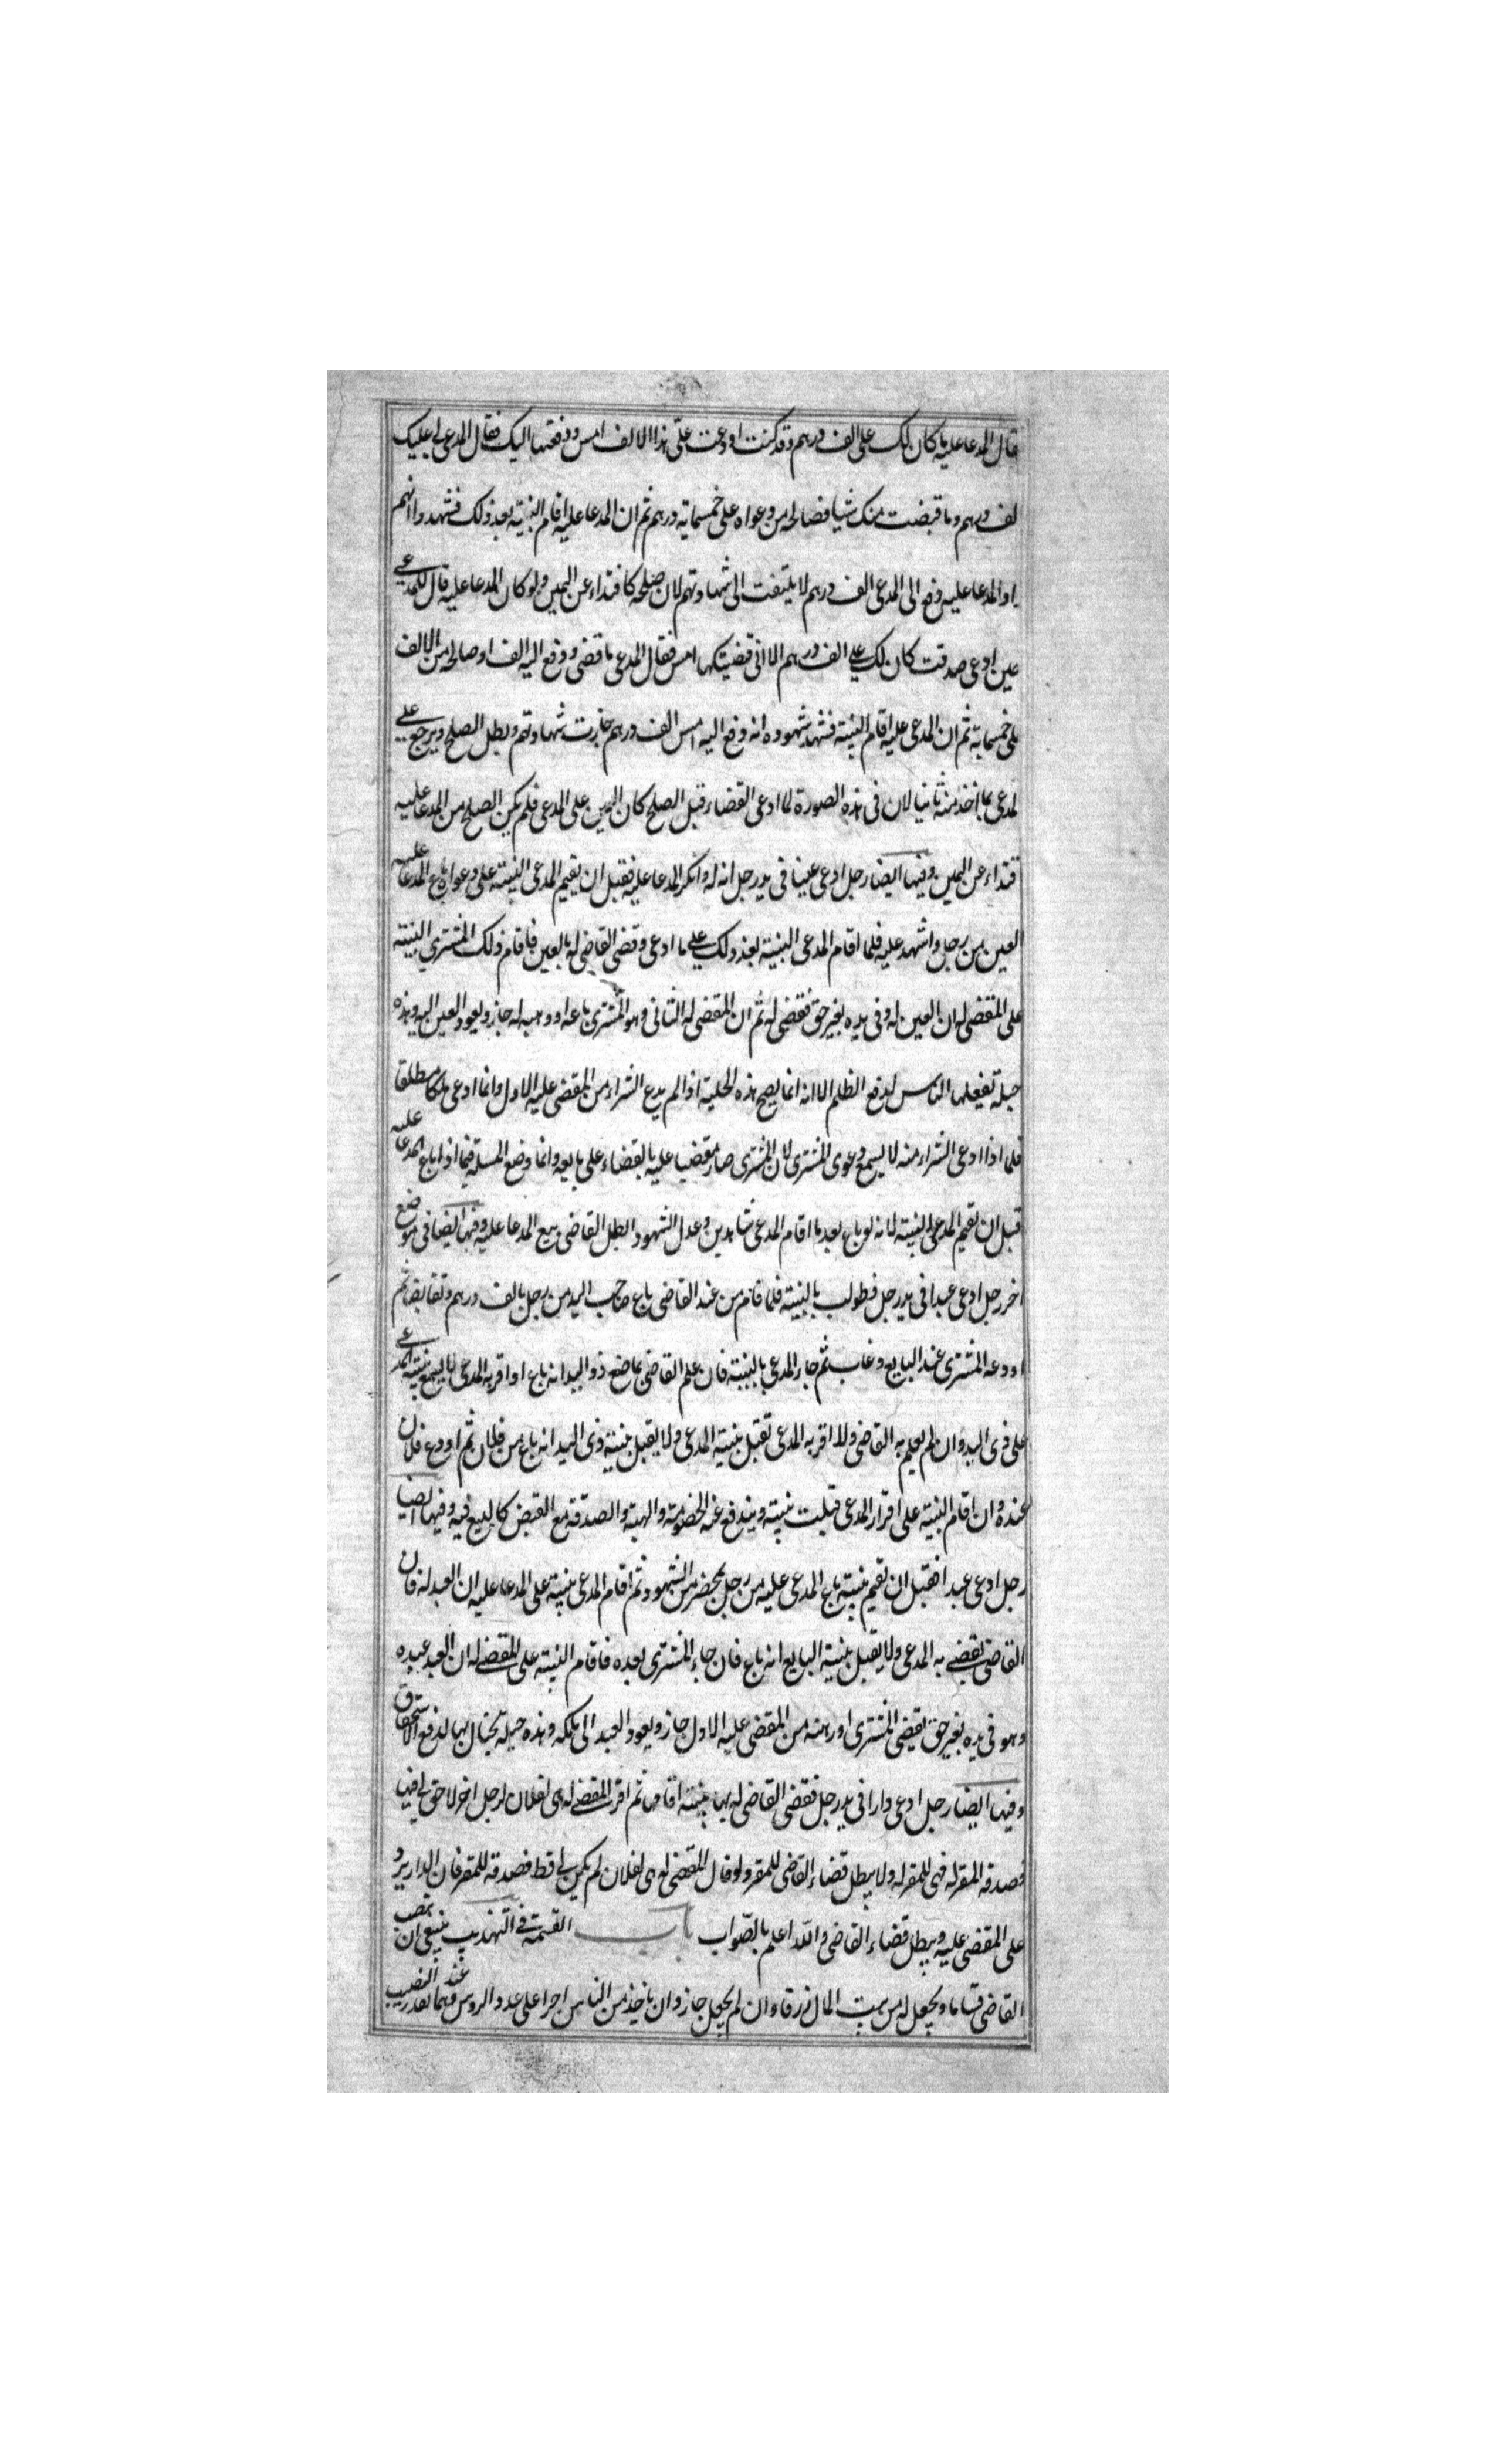 قال المدعا عليه ما كان لك على الف درهم وقد كنت اودعت علىّ هذا الالف امس ودفعتها اليك فقال المدعى لى عليك
لف درهم وما قبضت منك شيا فصالحه من دعواه على خمسماية درهم ثم ان المدعا عليه اقام البنية بعد ذلك فشهدوا انهم
او المدعا عليه دفع الى المدعى الف درهم لا يلتفت الى شهادتهم لان صلحه كا فتداء عن اليمين ولو كان المدعا عليه قال للمدعى
عين ادعى صدقت كان لك على الف درهم الا انى قضيتكها امس فقال المدعى ما قضى ودفع اليه الف او صالحه من الالف
على خمسماية ثم ان المدعى عليه اقام البنية فشهد شهوده انه دفع اليه امس الف درهم جازت شهادتهم وبطل الصلح ويرجع على
لمدعى بما اخذ منه ثانيا لان فى هذه الصورة لما ادعى القضاء قبل الصلح كان اليمين على المدعى فلم يكن الصلح من المدعا عليه
فتداء عن اليمين وفيها ايضا رجل ادعى عينا فى يد رجل انه له وانكر المدعا عليه فقبل ان يقيم المدعى البنية على دعواه باع المدعا عليه
العين من رجل واشهد عليه فلما اقام المدعى البنية بعد ذلك على ما ادعى وقضى القاضى له بالعين فاقام ذلك المشترى البنية
على المقضى له ان العين له وفى يده بغير حق فقضى له ثم ان المقضى له الثانى وهو المشترى باعه او وهبه له جاز ويعود العين اليه وهذه
حيلة تفعلها الناس لدفع الظلم الا انه انما يصح هذه الحيلة اذا لم يدع الشراء من المقضى عليه الاول وانما ادعى ملكا مطلقا
فلما اذا ادعى الشراء منه لا يسمع دعوى المشترى لان المشترى صار مقضيا عليه بالقضاء على بايعه وانما وضع المسلة فيما اذا باع المدعا عليه
قبل ان تقيم المدعى البنية لانه لو باع بعد ما اقام المدعى شاهدين وعدل الشهود ابطل القاضى بيع المدعا عليه وفيها ايضا فى موضع
اخر رجل ادعى عبدا فى يد رجل فطولب بالبنية فلما قام من عند القاضى باع صاحب اليد من رجل بالف درهم وتقابضا ثم
اودعه المشترى عند البايع وغاب ثم جاء المدعى بالبنية فان علم القاضى بما صنع ذو اليد انه باع او اقر به المدعى لا يسمع بنية المدعى
على ذى اليد وان لم يعلم به القاضى ولا اقر به المدعى تقبل بنية المدعى ولا يقبل بنية ذى اليد انه باع من فلان ثم اودع فلان
عنده وان اقام البنية على اقرار المدعى قبلت بنيته ويندفع عنه الخصومة والهبة والصدقة مع القبض كالبيع فيه وفيها ايضا
رجل ادعى عبدا فقبل ان تقيم بنيته باع المدعى عليه من رجل بمحضر من الشهود ثم اقام المدعى بنية على المدعا عليه ان العبد له فان
القاضى يقضى به المدعى ولا يقبل بنية البايع انه باع فان جاء المشترى بعده فاقام البنية على المقضى له ان العبد عبده
وهو فى يده بغير حق يقضى للمشترى اورهنه من المقضى عليه الاول جاز ويعود العبد الى ملكه وهذه حيلة يحتال بها لدفع الاستحقاق
وفيها ايضا رجل ادعى دارا فى يد رجل فقضى القاضى له بها ببنية اقامها ثم اقر المقضى له هى لفلان لرجل اخر لا حق لى فيها
فصدقه المقر له فهى للمقر له ولا يبطل قضاء القاضى للمقر ولو قال المقضى له هى لفلان لم يكن لى قط فصدقه للمقر فان الدار يرد
على المقضى عليه ويبطل قضاء القاضى والله اعلم بالصّواب باب القسمة فى التهذيب ينبغى ان ينصب
القاضى قساما ويجعل له من بيت المال رزقا وان لم يجعل جاز وان ياخذ من الناس اجرا على عدد الروس وهما بقدر النصيب عند